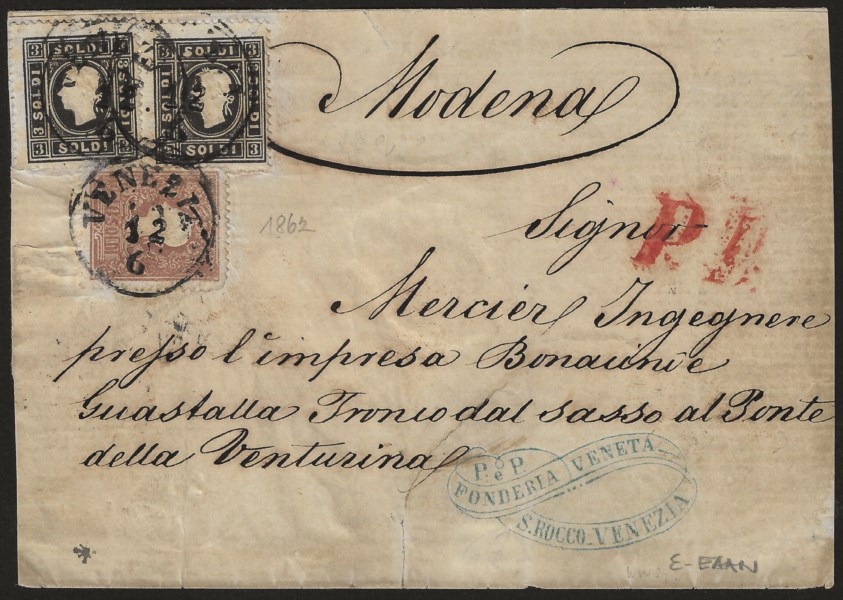 3 SOLDI 3 SOLDI
SOLDI SOLDI
3 SOLDI 3 3 SOLDI 3
Modena
VENEZIA
12
6
1862
Signor
P D
Mercier Ingegnere
presso l'impresa Bonaiuni e
Guastalla Tronco dal sasso al Ponte
della Venturina
P. e P.
FONDERIA VENETA
S. ROCCO - VENEZIA